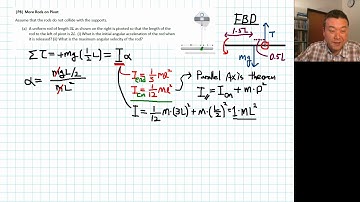 [P6] More Rods on Pivot
Assume that the rods do not collide with the supports.
(a) A uniform rod of length 3L as shown on the right is pivoted so that the length of the rod to the left of pivot is 2L. (i) What is the initial angular acceleration of the rod when it is released? (ii) What is the maximum angular velocity of the rod?
EBD
1.5L
T
mg
0.5L
Στ = +mg(½L) = Iα
α = mgL/2 / mL²
I_end = 1/3 ml²
I_cm = 1/12 ml²
Parallel Axis theorem
I_// = I_cm + m·D²
I = 1/12 m·(3L)² + m·(L/2)² = 1·mL²